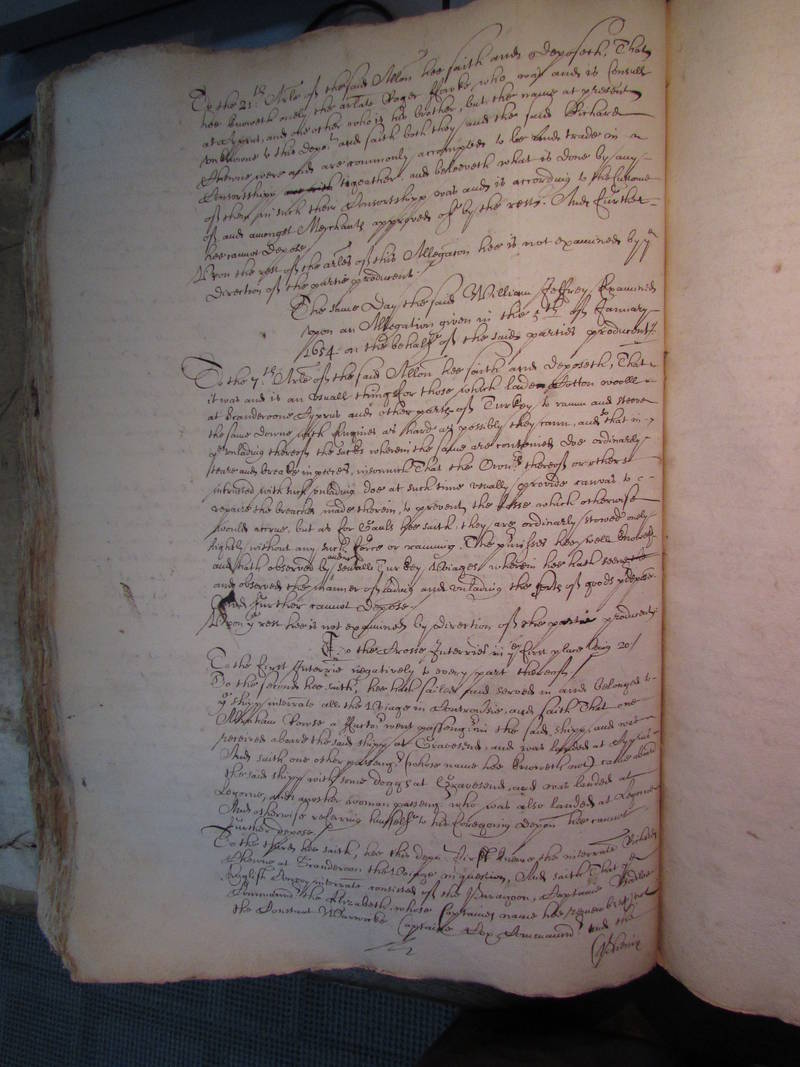 To the 21th Arle of the said Allon hee saith and deposeth, That
hee knoweth onely the arlate Roger who was and is Consull
at Cyprus, and one other who is his brother, but the name at present
unknowne to this depot and saith both they and the said Richard
were and are commonly accompted to be and trade in a
Consortshipp togeather, and beleeveth what is done by any
of them in such their Consortshipp was and is according to the Custome
of and amongst Merchants approved of by the rest. And further
hee cannot depose.
Upon the rest of the arles of this Allegaton hee is not examined by ye
direction of the partie producent.
The same day the said William Jeffrey Examined
upon an Allegation given in the 5th of January
1654 on the behalfe of the said parties producent.
To the 7th Arle of the said Allon hee saith and deposeth, That
it was and is an usuall thing for those which lade Cotton wooll
at Scanderoone Cyprus and other parts of Turkey to ramm and steeve
the same downe with Engines as hard as possibly they cann, and that in
ye unlading thereof the sacks wherein the same are conteined doe ordinarily
teare and breake in peeces, insomuch That the Owners thereof or others
intrusted with such unlading doe at such time usually provide canvas to
repaire the breaches made therein, to prevent the losse which otherwise
would accrue, but as for Gaules hee saith they are ordinarily stowed only
lightly without any such force or raming. The prmisses hee well knoweth
and hath observed by severall Turkey Viages wherein hee hath seene
and observed the manner of lading and unlading the sorts of goods prdepose.
And further cannot depose.
Upon ye rest hee is not examined by direction of the partie producent.
To the Crosse Interries in ye first place
To the first Interrie negatively to every part thereof
To the second hee saith, hee hath sailed and served in and belonged to
ye shipp interrate all the Viage in Controvsie, and saith That one
Abraham a Factor went passenger in the said shipp, and was
received aboard the said shipp at Gravesend, and was landed at Cyprus
And saith one other passengr (whose name hee knoweth not) came aboard
the said shipp with some doggs at Gravesend, and was landed at
Legorne, and another woman passengr who was also landed at Legorne
And otherwise referring himselfe to his foregoing depon hee cannot
further depose
To the third hee saith, hee this depot first knewe the interrate Richard
at Scanderoon the Viage in question, And saith That ye
English interrate consisted of the Paragon, Captaine
Command the Elizabeth, whose Captaines name hee remembreth not
the Constant Warwicke Captaine Commandr and the